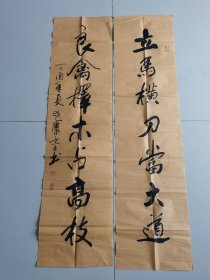 立馬橫刀當大道
良禽擇木占高枝
丁酉年夏